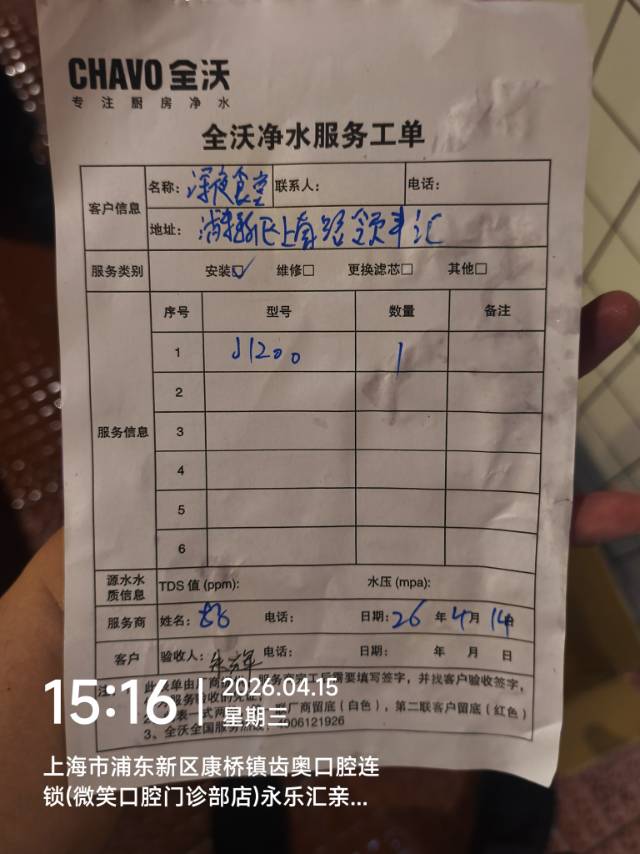 CHAVO 全沃
专注厨房净水
全沃净水服务工单
客户信息
名称: 深夜食堂 联系人: 电话:
地址: 浦东新区上南路 汇
服务类别 安装☑ 维修□ 更换滤芯□ 其他□
服务信息
序号 型号 数量 备注
1 J1200 1
2
3
4
5
6
源水水质信息 TDS 值 (ppm): 水压 (mpa):
服务商 姓名: 电话: 日期: 26 年 4 月 14 日
客户 验收人: 电话: 日期: 年 月 日
注: 需要填写签字,并找客户验收签字,
厂商留底(白色),第二联客户留底(红色)
3、全沃全国服务 006121926
15:16
2026.04.15
星期三
上海市浦东新区康桥镇齿奥口腔连
锁(微笑口腔门诊部店)永乐汇亲...